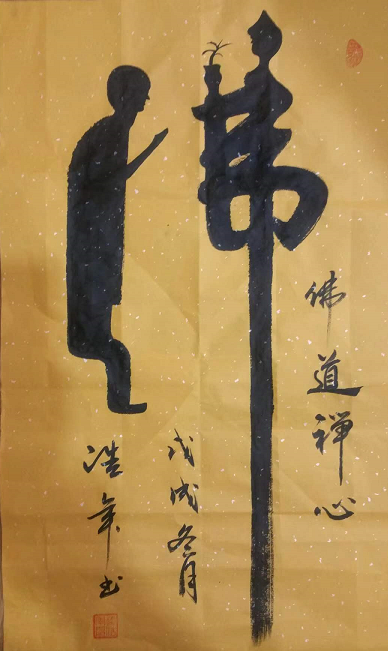 佛
佛道禅心
戊戌冬月
浩年书